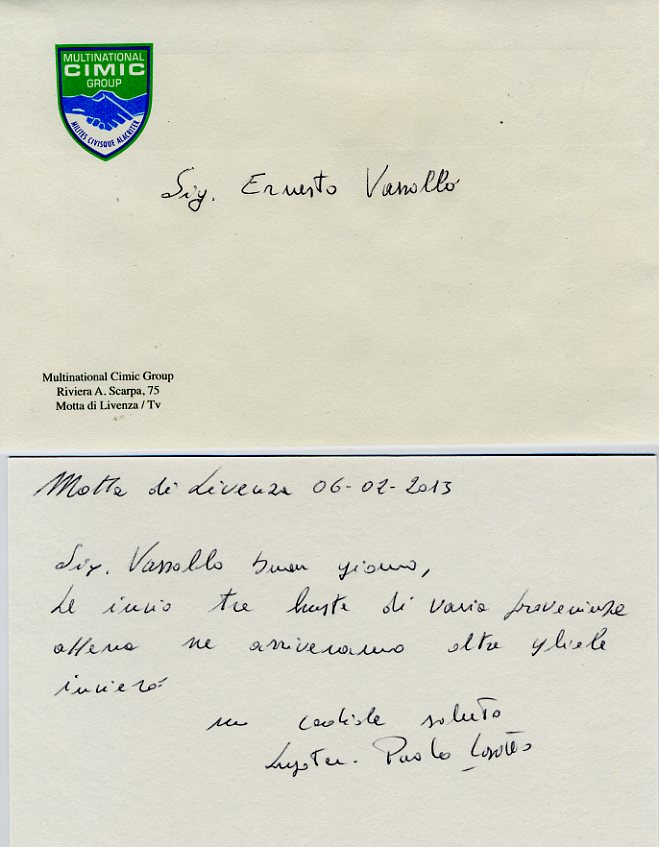 MULTINATIONAL
CIMIC
GROUP
MILITES CIVISQUE ALACRITER
Sig. Ernesto Vassallo
Multinational Cimic Group
Riviera A. Scarpa, 75
Motta di Livenza / Tv
Motta di Livenza 06-02-2013
Sig. Vassallo buon giorno,
Le invio tre buste di varia provenienza
appena ne arriveranno altre gliele
invierò
un cordiale saluto
Luogoten. Paolo